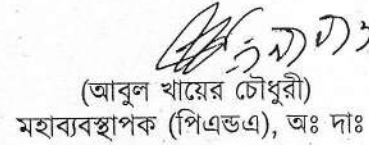 (আবুল খায়ের চৌধুরী)
মহাব্যবস্থাপক (পিএন্ডএ), অঃ দাঃ